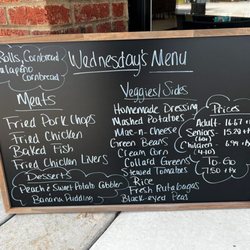 Rolls, Cornbread
Jalapeno
Cornbread
Wednesday's Menu
Meats
Fried Pork Chops
Fried Chicken
Baked Fish
Fried Chicken Livers
Desserts
Peach & Sweet Potato Cobbler
Banana Pudding
Veggies/Sides
Homemade Dressing
Mashed Potatoes
Mac-n-Cheese
Green Beans
Cream Corn
Collard Greens
Stewed Tomatoes
Rice
Fresh Rutabagas
Black-eyed Peas
Prices
Adult-
Seniors-
(60+)
Children-
(4-10)
To-Go
7.50 + tx